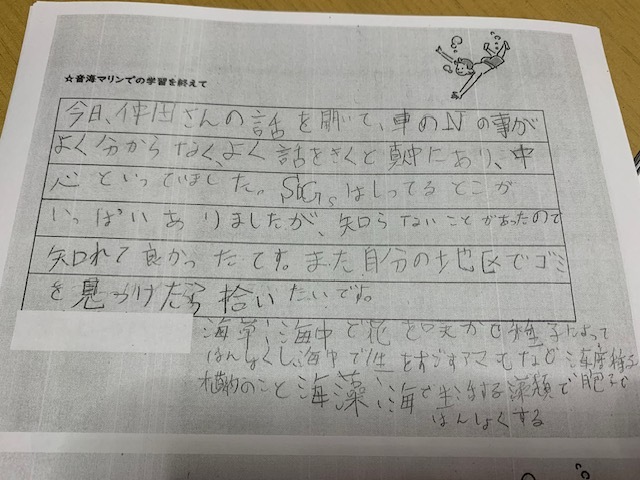 ☆音海マリンでの学習を終えて
今日、仲田さんの話を聞いて、車のNの事が
よく分からなく、よく話をきくと真中にあり、中
心といっていました。SDGsはしってるとこが
いっぱいありましたが、知らないことがあったので
知れて良かったです。また自分の地区でゴミ
を見つけたら拾いたいです。
海草;海中で花を咲かせ種子によって
はんしょくし、海中で一生をすごすアマモなど海産種子
植物のこと海藻;海で生活する藻類で胞子で
はんしょくする